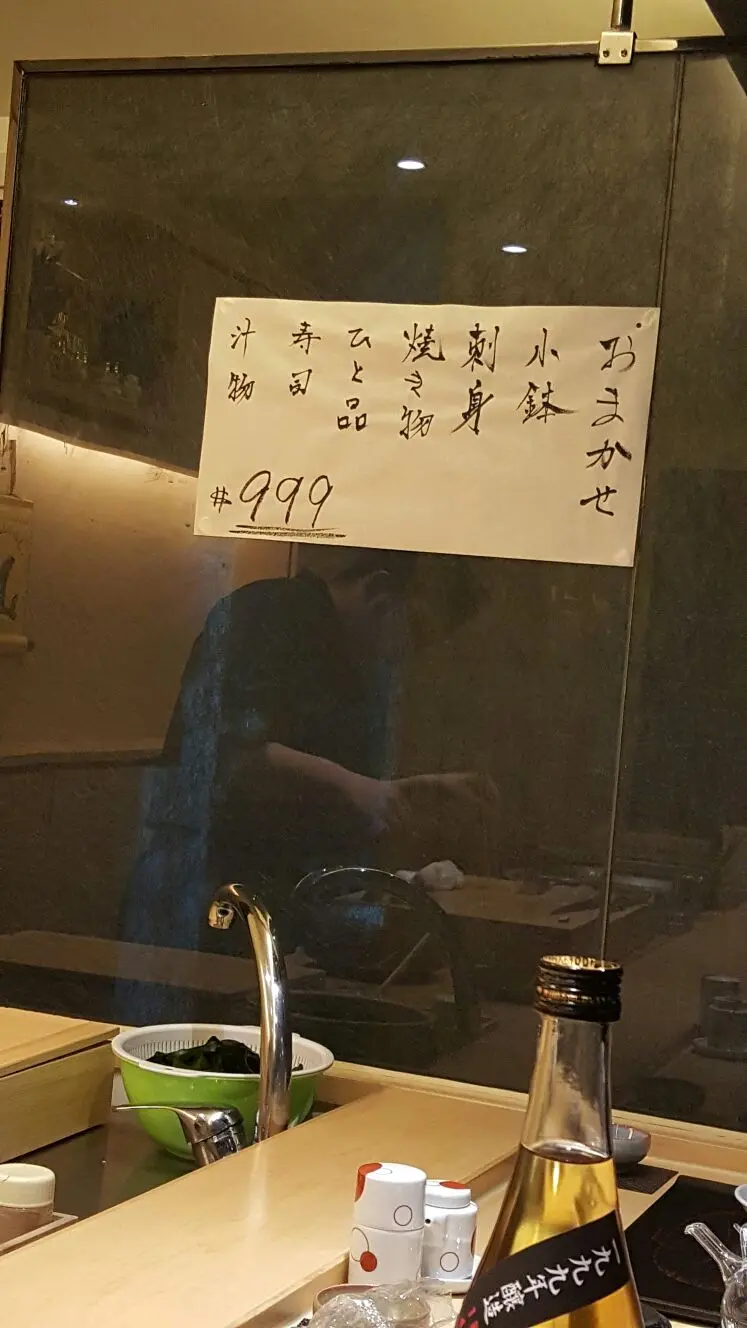 おまかせ
小鉢
刺身
焼き物
ひと品
寿司
汁物
#999
一九九九年醸造